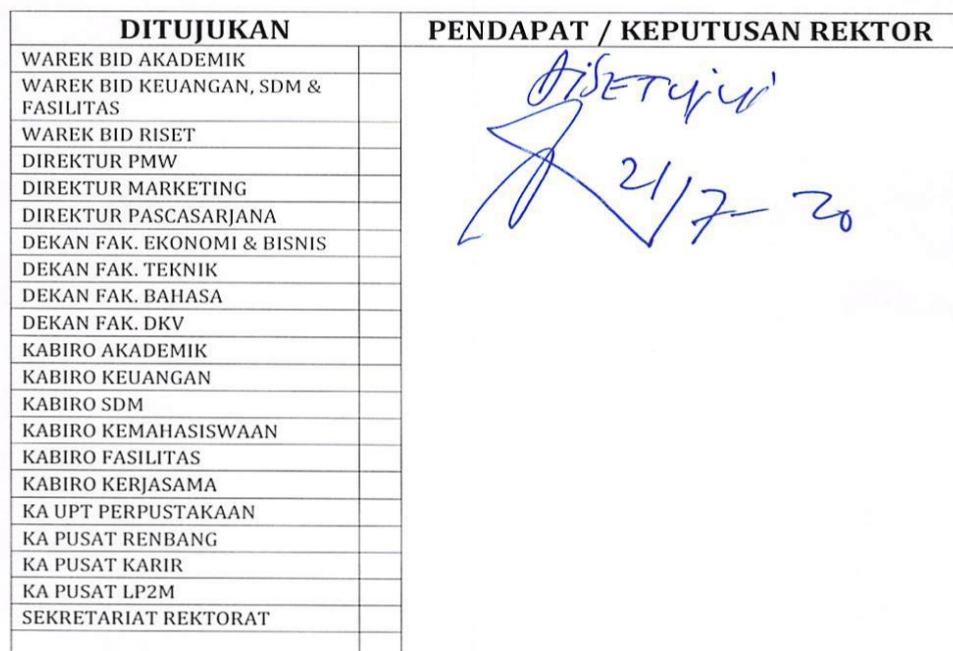 DITUJUKAN
PENDAPAT / KEPUTUSAN REKTOR
WAREK BID AKADEMIK
WAREK BID KEUANGAN, SDM &
FASILITAS
WAREK BID RISET
DIREKTUR PMW
DIREKTUR MARKETING
DIREKTUR PASCASARJANA
DEKAN FAK. EKONOMI & BISNIS
DEKAN FAK. TEKNIK
DEKAN FAK. BAHASA
DEKAN FAK. DKV
KABIRO AKADEMIK
KABIRO KEUANGAN
KABIRO SDM
KABIRO KEMAHASISWAAN
KABIRO FASILITAS
KABIRO KERJASAMA
KA UPT PERPUSTAKAAN
KA PUSAT RENBANG
KA PUSAT KARIR
KA PUSAT LP2M
SEKRETARIAT REKTORAT
DiSETujui
21/7- 20